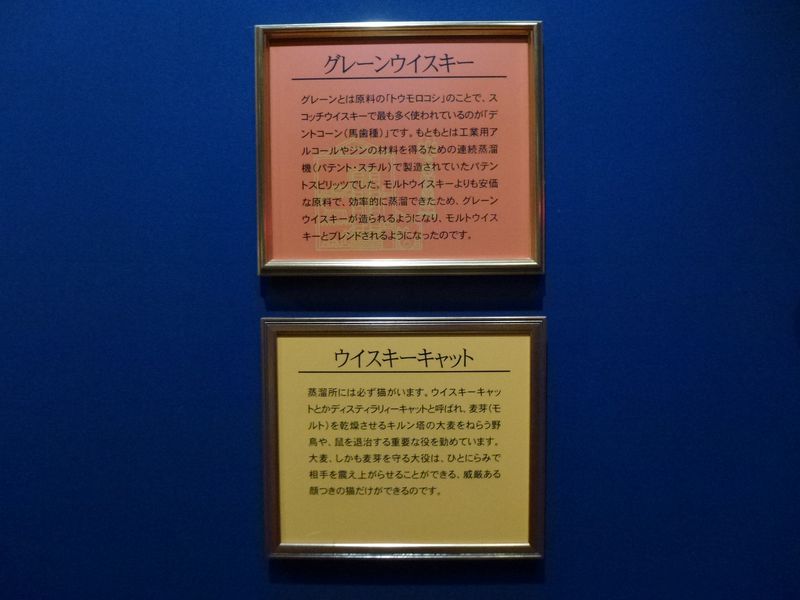 グレーンウイスキー
グレーンとは原料の「トウモロコシ」のことで、ス
コッチウイスキーで最も多く使われているのが「デ
ントコーン(馬歯種)」です。もともとは工業用ア
ルコールやジンの材料を得るための連続蒸溜
機(パテント・スチル)で製造されていたパテン
トスピリッツでした。モルトウイスキーよりも安価
な原料で、効率的に蒸溜できたため、グレーン
ウイスキーが造られるようになり、モルトウイス
キーとブレンドされるようになったのです。
ウイスキーキャット
蒸溜所には必ず猫がいます。ウイスキーキャッ
トとかディスティラリィーキャットと呼ばれ、麦芽(モ
ルト)を乾燥させるキルン塔の大麦をねらう野
鳥や、鼠を退治する重要な役を勤めています。
大麦、しかも麦芽を守る大役は、ひとにらみで
相手を震え上がらせることができる、威厳ある
顔つきの猫だけができるのです。